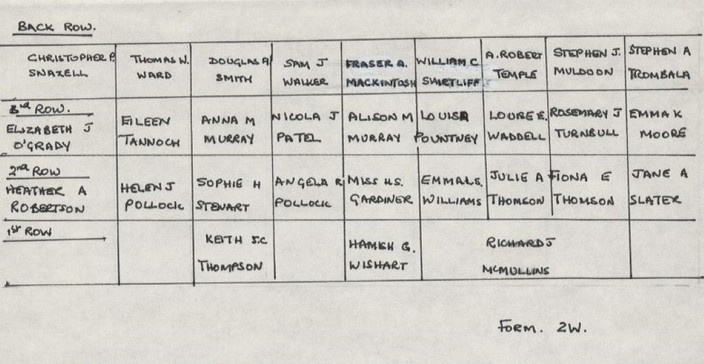 BACK ROW.
CHRISTOPHER P. THOMAS W. DOUGLAS A SAM J FRASER A. WILLIAM C A. ROBERT STEPHEN J. STEPHEN A
SNAZELL WARD SMITH WALKER MACKINTOSH SHIRTLIFF TEMPLE MULDOON TROMBALA
3rd ROW.
ELIZABETH J EILEEN ANNA M NICOLA J ALISON M LOUISA LOUISE E. ROSEMARY J EMMA K
O'GRADY TANNOCH MURRAY PATEL MURRAY POUNTNEY WADDELL TURNBULL MOORE
2nd ROW
HEATHER A HELEN J SOPHIE H ANGELA R MISS H.S. EMMA L.E. JULIE A FIONA E JANE A
ROBERTSON POLLOCK STEWART POLLOCK GARDINER WILLIAMS THOMSON THOMSON SLATER
1st ROW
KEITH J.C HAMISH G. RICHARD J
THOMPSON WISHART MCMULLINS
FORM. 2W.